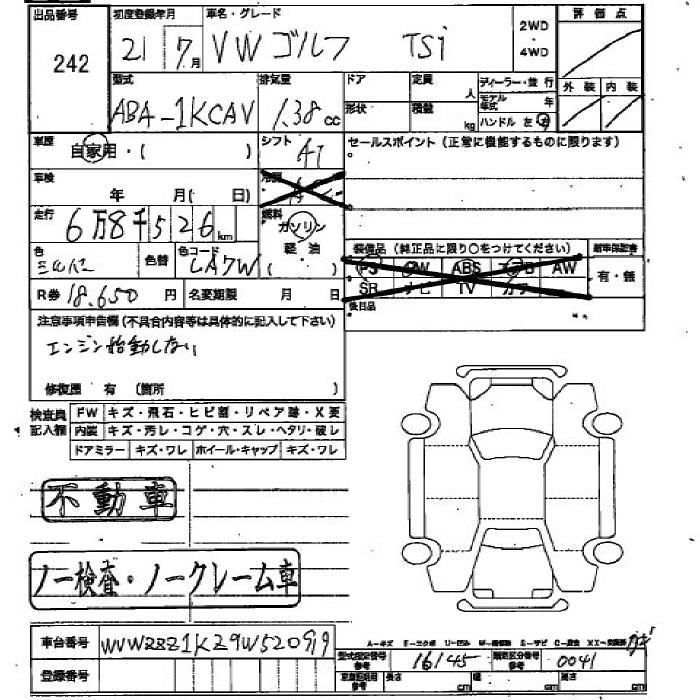 出品番号
242
初度登録年月
21 7月
車名・グレード
VW ゴルフ TSi
2WD
・
4WD
評価点
外装 内装
型式
ABA-1KCAV
排気量
1.38cc
ドア
形状
定員 人
積載 kg
ディーラー・並行
モデル年式 年
ハンドル 左・右
車歴
自家用・( )
シフト
AT
セールスポイント (正常に機能するものに限ります)
車検
年 月( 日)
冷房
走行
6万8千526km
燃料
ガソリン
軽・油
( )
色
シルバー
色替
色コード
LA7W
装備品 (純正品に限り○をつけてください)
PS PW ABS AW
SR ナビ TV カワ
新車保証書
有・無
R券 18,650円
名変期限 月 日
後日品
注意事項申告欄 (不具合内容等は具体的に記入して下さい)
エンジン始動しない
修復歴 有 (箇所 )
検査員記入欄
FW キズ・飛石・ヒビ割・リペア跡・X要
内装 キズ・汚レ・コゲ・穴・スレ・ヘタリ・破レ
ドアミラー キズ・ワレ ホイール・キャップ キズ・ワレ
不動車
ノー検査・ノークレーム車
車台番号
WVWZZZ1KZ9W520919
登録番号
型式指定番号参考 16145
類別区分番号参考 0041
長さ cm 幅 cm 高さ cm